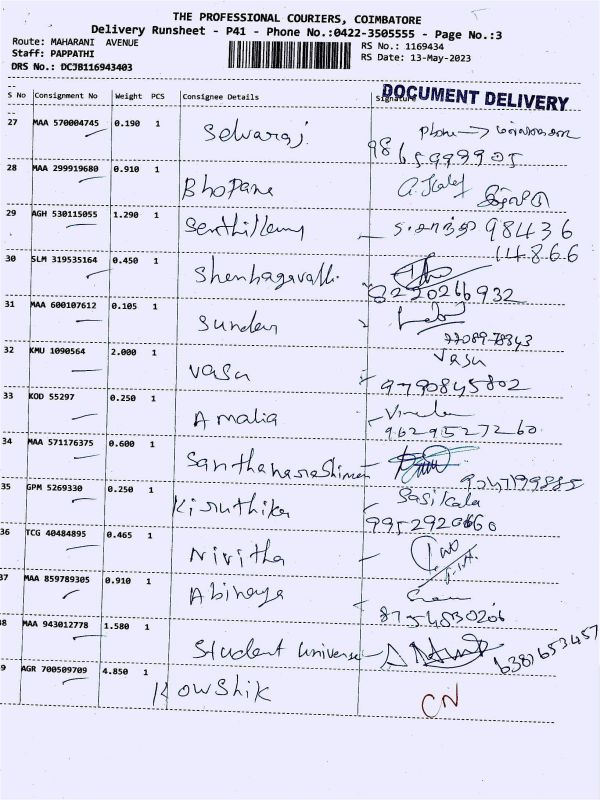 THE PROFESSIONAL COURIERS, COIMBATORE
Delivery Runsheet - P41 - Phone No.:0422-3505555 - Page No.:3
Route: MAHARANI AVENUE
RS No.: 1169434
Staff: PAPPATHI
RS Date: 13-May-2023
DRS No.: DCJB116943403
S No Consignment No Weight PCS Consignee Details Signature
DOCUMENT DELIVERY
27 MAA 570004745 0.190 1 Selvaraj Phone →
9865999905
28 MAA 299919680 0.910 1 Bhopane
29 AGH 530115055 1.290 1 98436
14866
30 SLM 319535164 0.450 1 Shenbagavalli
8220266932
31 MAA 600107612 0.105 1 Sundar
32 KMU 1090564 2.000 1 Vasu Vasu
9790845802
33 KOD 55297 0.250 1 Amalia
9629527260
34 MAA 571176375 0.600 1
35 GPM 5269330 0.250 1 Kiruthika Sasikala
9952920660
36 TCG 40484895 0.465 1 Nivitha
37 MAA 859789305 0.910 1 Abinaya
8754830206
38 MAA 943012778 1.580 1 Student universe
6381653457
39 AGR 700509709 4.850 1 Kowshik CN